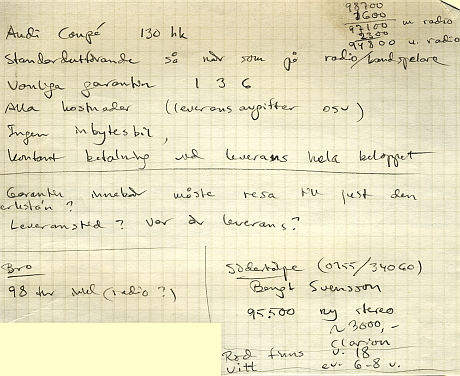 98700
1600
97100 m radio
2300
94800 u. radio
Audi Coupé 130 hk
Standardutförande så när som på radio/bandspelare
Vanliga garantin 1 3 6
Alla kostnader (leveransavgifter osv)
Ingen inbytesbil,
kontant betalning vid leverans hela beloppet
Garantin innebär måste resa till just den
erkstan?
Leveranstid? Var är leverans?
Bro
98 tkr inkl (radio?)
Södertälje (0755/34060)
Bengt Svensson
95.500 ny stereo
~ 3000,-
Clarion
Röd finns v. 18
vitt ev. 6-8 v.